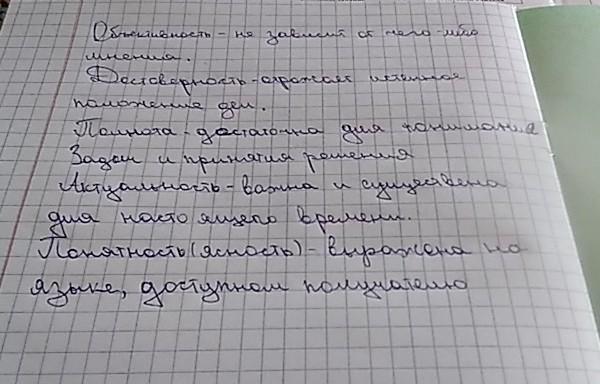 Объективность - не зависит от чего-либо
мнения.
Достоверность - отражает истенное
положение дел.
Полнота - достаточна для понимания
Задач и принятия решения
Актуальность - важна и существена
для настоящего времени.
Понятность (ясность) - выражена на
языке, доступном получателю